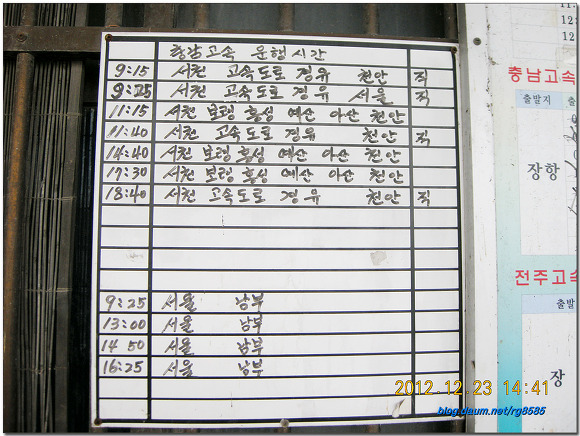 충남고속 운행시간
9:15 서천 고속도로 경유 천안 직
9:25 서천 고속도로 경유 서울 직
11:15 서천 보령 홍성 예산 아산 천안
11:40 서천 고속도로 경유 천안 직
14:40 서천 보령 홍성 예산 아산 천안
17:30 서천 보령 홍성 예산 아산 천안
18:40 서천 고속도로 경유 천안 직
9:25 서울 남부
13:00 서울 남부
14 50 서울 남부
16:25 서울 남부
충남고속
출발지
장항
전주고속
출발
장
2012.12.23 14:41
blog.daum.net/rg8585